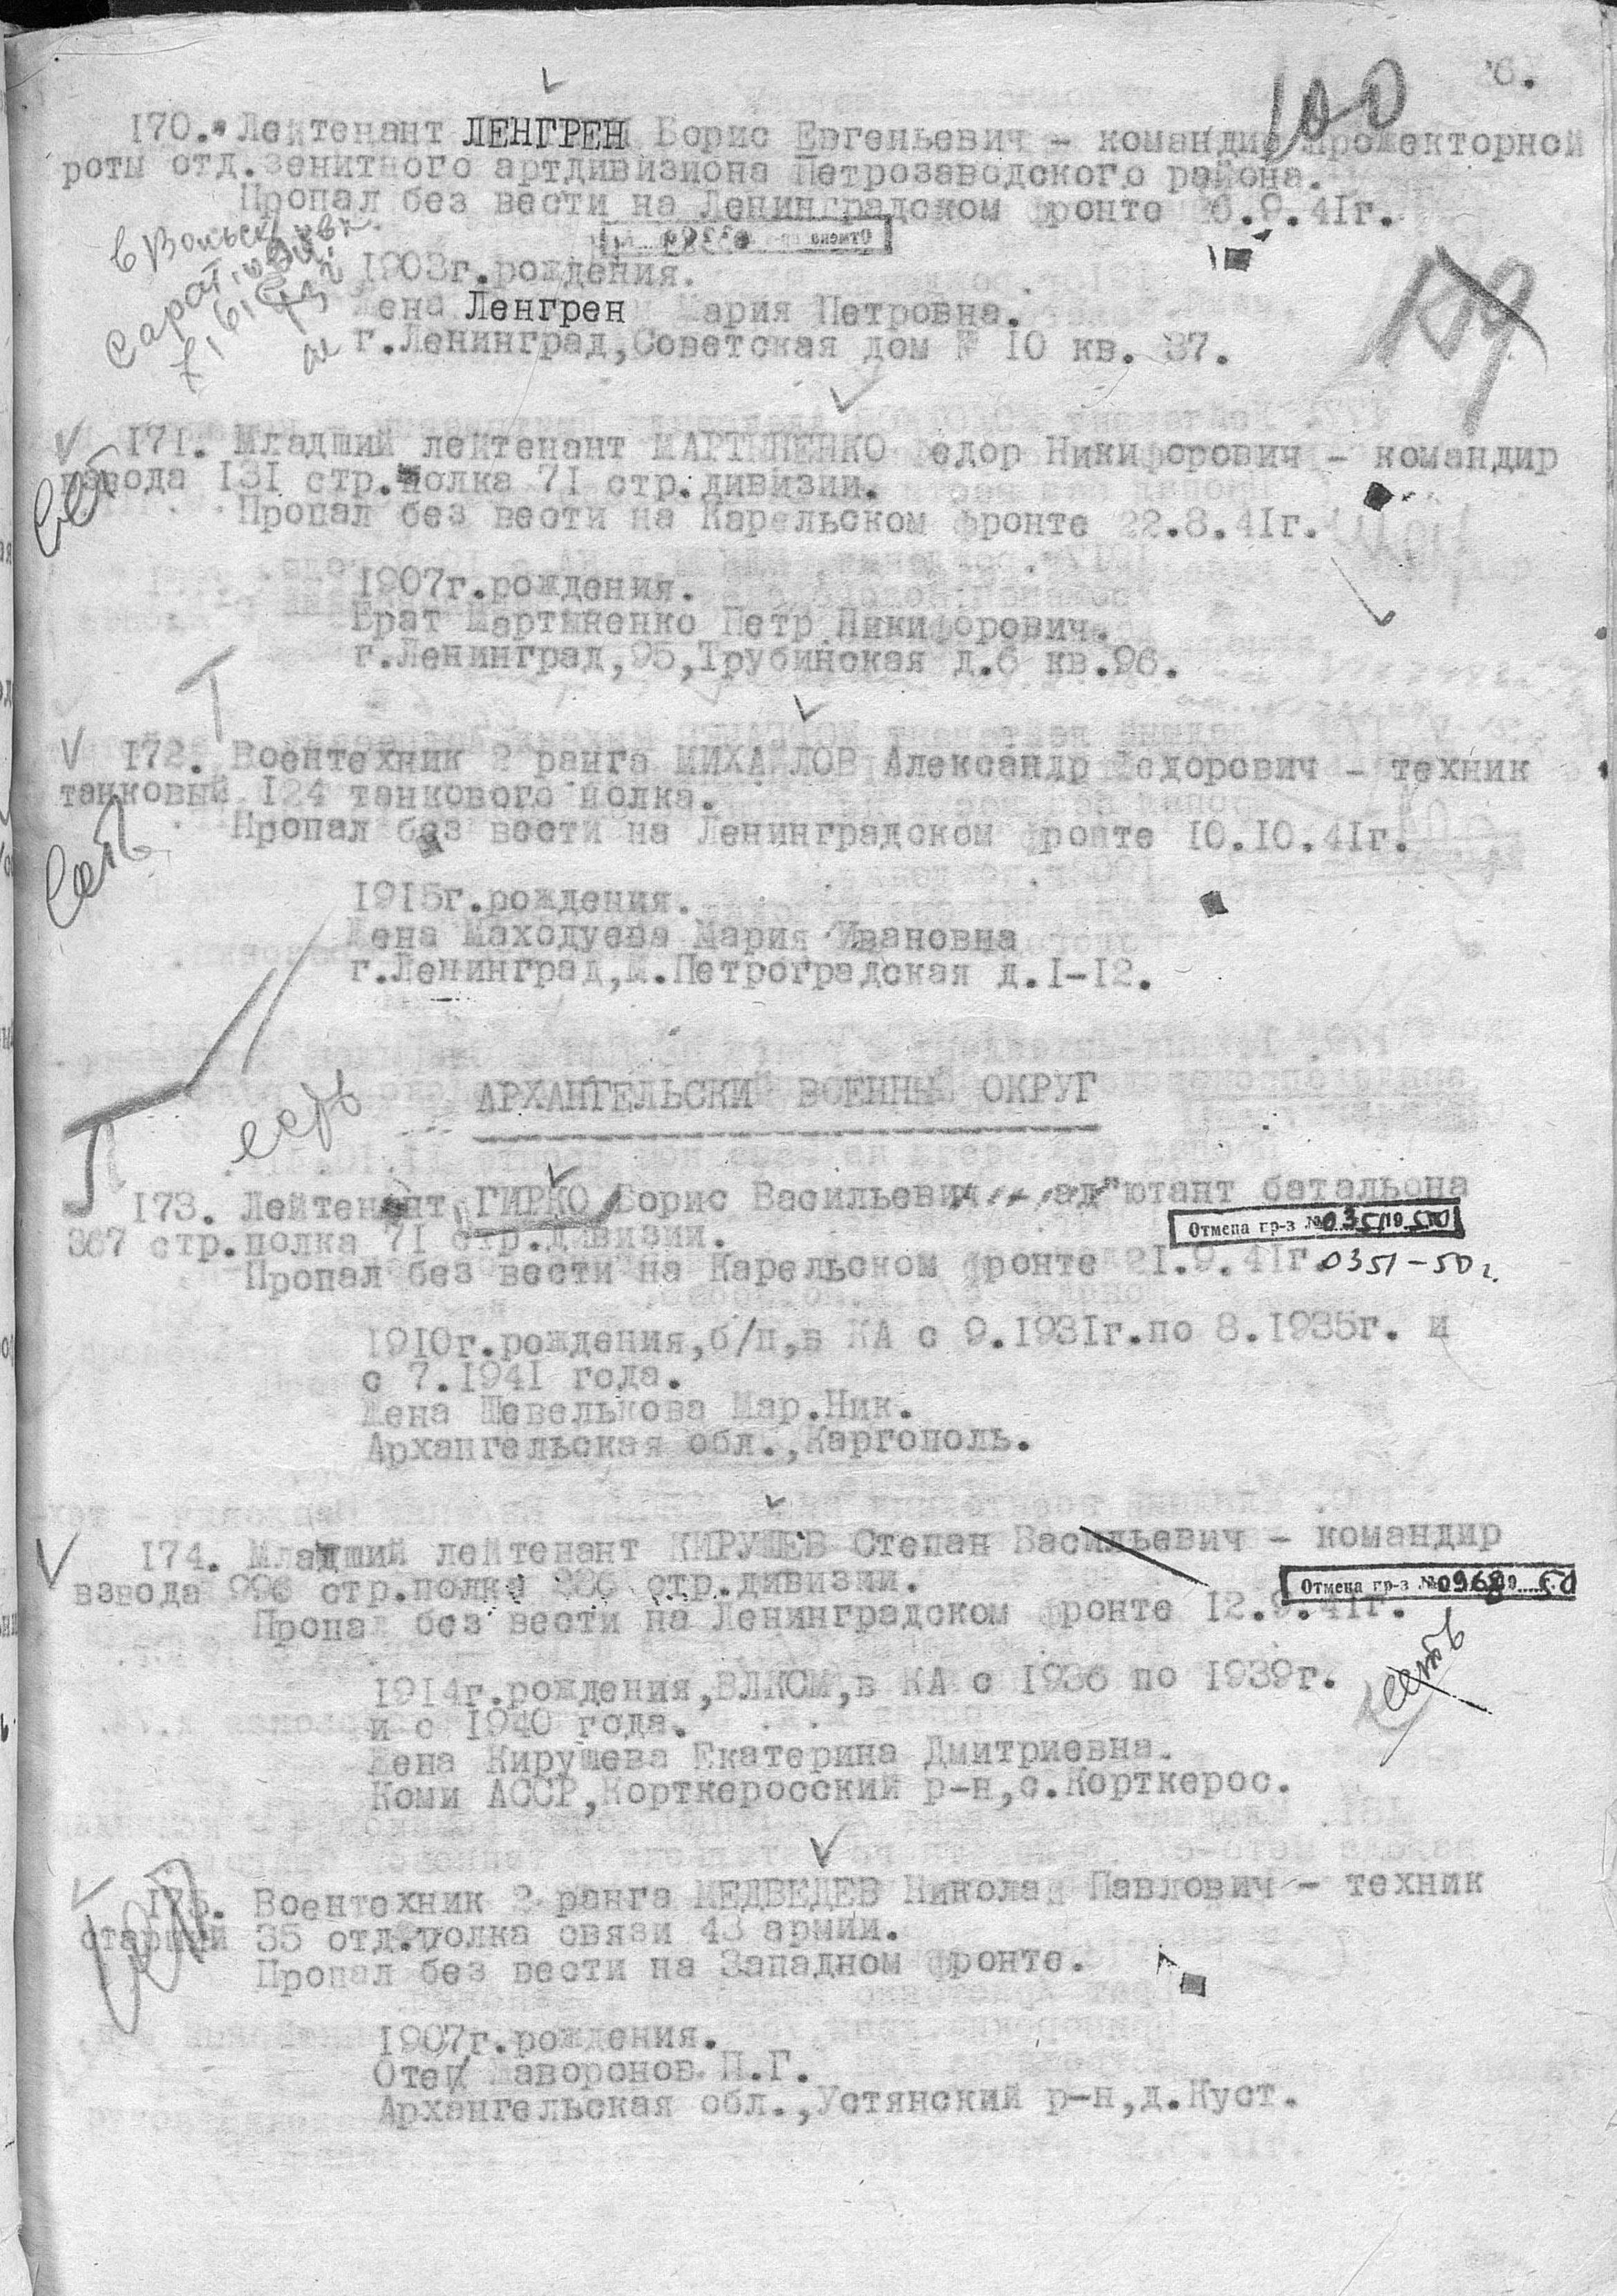 100
6.
170. Лейтенант ЛЕНГРЕН Борис Евгеньевич - командир прожекторной
роты отд.зенитного артдивизиона Петрозаводского района.
Пропал без вести на Ленинградском фронте 26.9.41г.
в Вольск
1903г.рождения.
Жена Ленгрен Мария Петровна.
г.Ленинград,Советская дом № 10 кв. 37.
171. Младший лейтенант МАРТЫНЕНКО Федор Никифорович - командир
взвода 131 стр.полка 71 стр.дивизии.
Пропал без вести на Карельском фронте 22.8.41г.
1907г.рождения.
Брат Мартыненко Петр Никифорович.
г.Ленинград,95,Трубинская д.6 кв.96.
172. Воентехник 2 ранга МИХАЙЛОВ Александр Федорович - техник
танковый 124 танкового полка.
Пропал без вести на Ленинградском фронте 10.10.41г.
1915г.рождения.
Жена Маходуева Мария Ивановна
г.Ленинград,М.Петроградская д.1-12.
есть
АРХАНГЕЛЬСКИЙ ВОЕННЫЙ ОКРУГ
173. Лейтенант ГИРКО Борис Васильевич - ад"ютант батальона
367 стр.полка 71 стр.дивизии.
Отмена пр-з № 0351 19 50
Пропал без вести на Карельском фронте 21.9.41г. 0351-50г.
1910г.рождения,б/п,в КА с 9.1931г.по 8.1935г. и
с 7.1941 года.
Жена Шевелькова Мар.Ник.
Архангельская обл.,Каргополь.
174. Младший лейтенант КИРУШЕВ Степан Васильевич - командир
взвода 996 стр.полка 286 стр.дивизии.
Отмена пр-з № 0968 19 50
Пропал без вести на Ленинградском фронте 12.9.41г.
есть
1914г.рождения,ВЛКСМ,в КА с 1936 по 1939г.
и с 1940 года.
Жена Кирушева Екатерина Дмитриевна.
Коми АССР,Корткеросский р-н,с.Корткерос.
175. Воентехник 2 ранга МЕДВЕДЕВ Николай Павлович - техник
старший 35 отд.полка связи 43 армии.
Пропал без вести на Западном фронте.
1907г.рождения.
Отец Жаворонов П.Г.
Архангельская обл.,Устянский р-н,д.Куст.